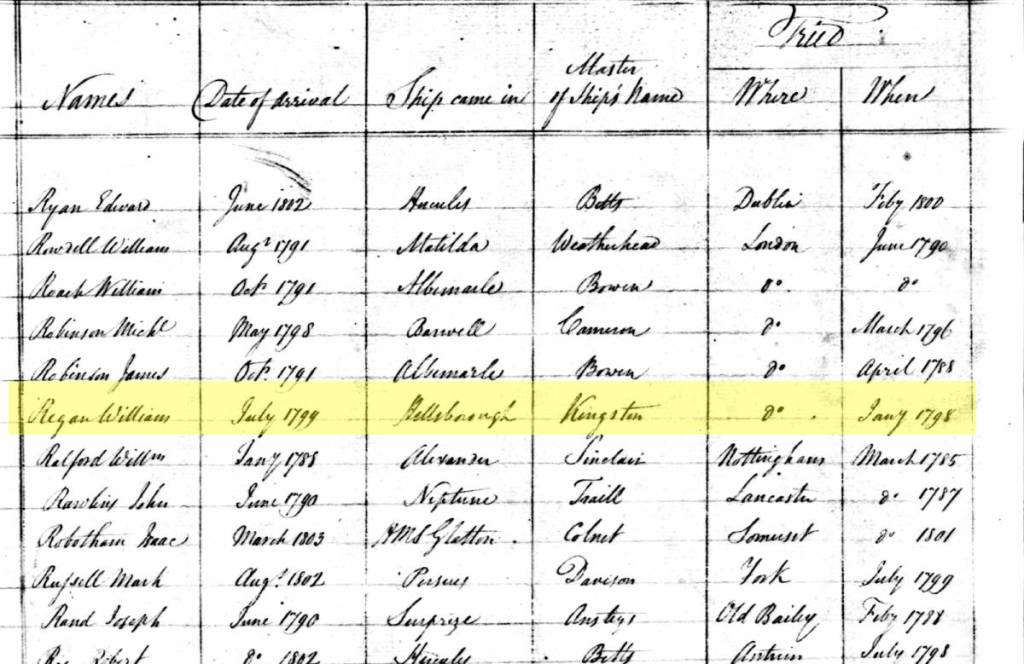 Tried
Names Date of arrival Ship came in Master of Ship's Name Where When
Ryan Edward June 1802 Hercules Betts Dublin Feby 1800
Rowdell William Augt 1791 Matilda Weatherhead London June 1790
Roach William Octr 1791 Albemarle Bowen do do
Robinson Michl May 1798 Barwell Cameron do March 1796
Robinson James Octr 1791 Albemarle Bowen do April 1788
Regan William July 1799 Hillsborough Kingston do Jany 1798
Ralford Willm Jany 1788 Alexander Sinclair Nottingham March 1785
Rawlins John June 1790 Neptune Traill Lancaster do 1787
Robotham Isaac March 1803 HMS Glatton Colnet Somerset do 1801
Russell Mark Augt 1802 Perseus Davison York July 1799
Rand Joseph June 1790 Surprize Anstys Old Bailey Feby 1788
Robert do 1802 Hercules Betts Antrim July 1798